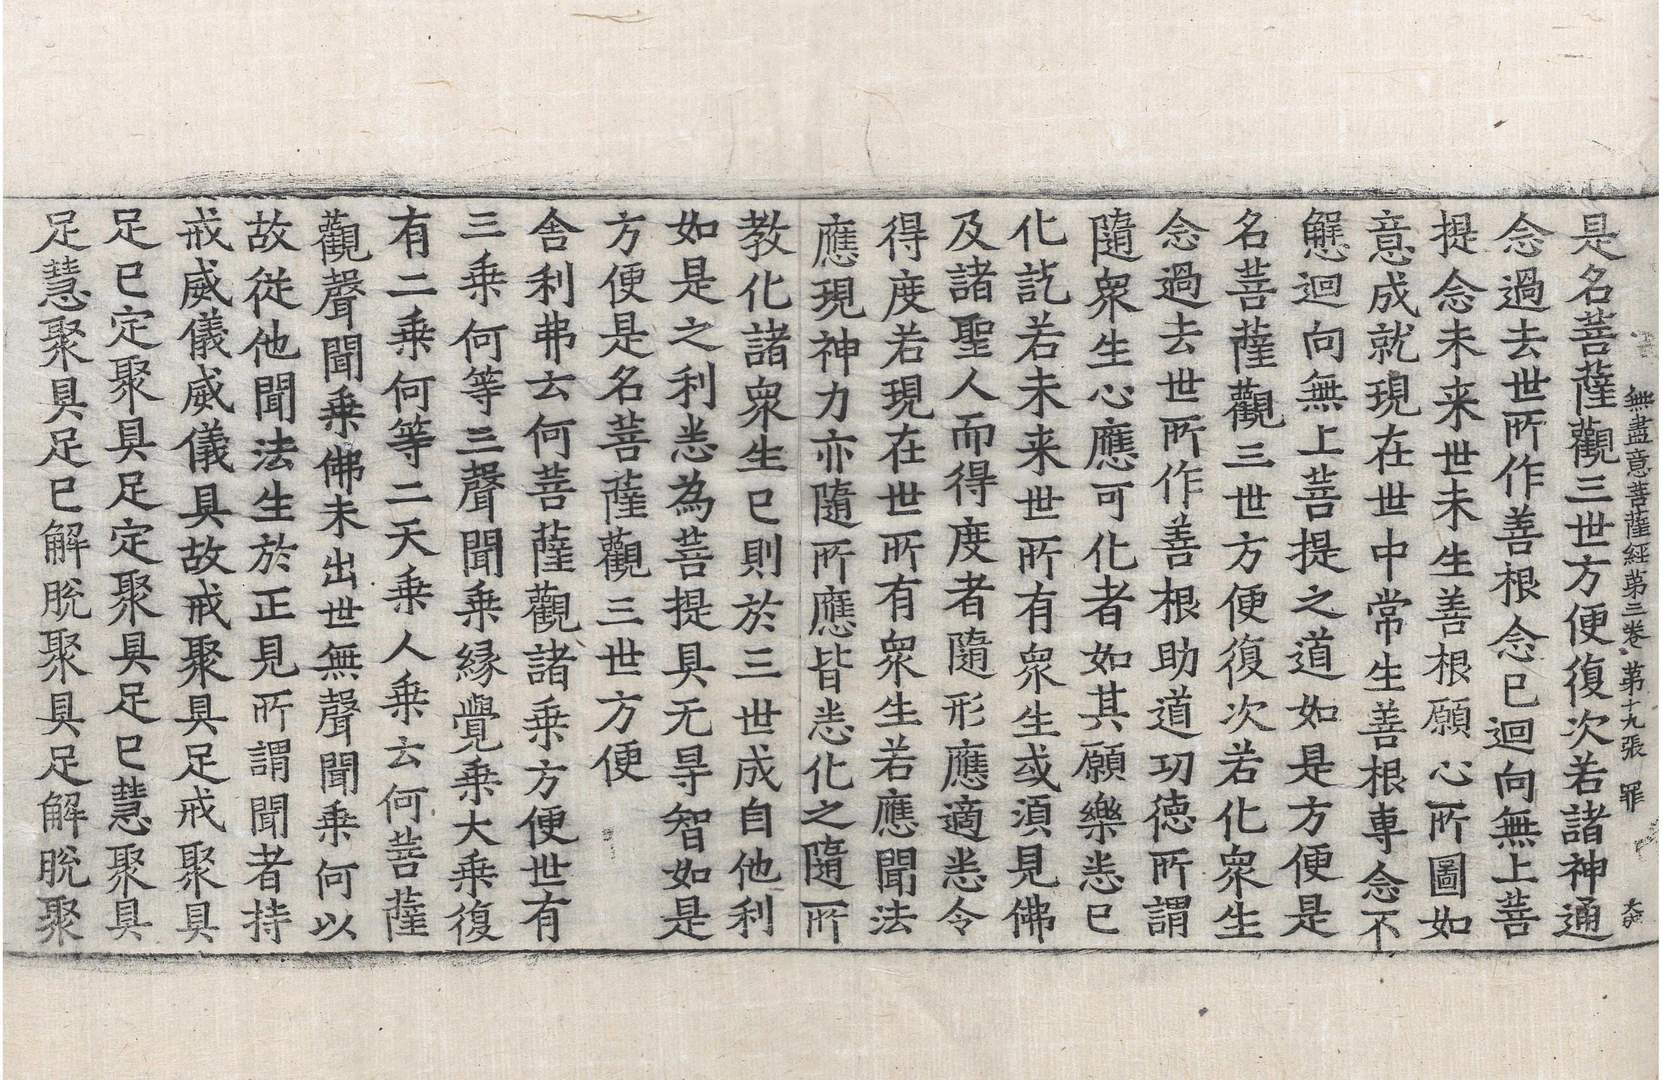 無盡意菩薩經第三卷 第十九張 罪
是名菩薩觀三世方便復次若諸神通
念過去世所作善根念已迴向無上菩
提念未来世未生善根願心所圖如
意成就現在世中常生善根專念不
懈迴向無上菩提之道如是方便是
名菩薩觀三世方便復次若化衆生
念過去世所作善根助道功德所謂
隨衆生心應可化者如其願樂悉已
化訖若未来世所有衆生或湏見佛
及諸聖人而得度者隨形應適悉令
得度若現在世所有衆生若應聞法
應現神力亦隨所應皆悉化之隨所
教化諸衆生已則於三世成自他利
如是之利悉為菩提具无导智如是
方便是名菩薩觀三世方便
舍利弗云何菩薩觀諸乗方便世有
三乗何等三聲聞乗縁覺乗大乗復
有二乗何等二天乗人乗云何菩薩
觀聲聞乗佛未出世無聲聞乗何以
故從他聞法生於正見所謂聞者持
戒威儀威儀具故戒聚具足戒聚具
足已定聚具足定聚具足已慧聚具
足慧聚具足已解脫聚具足解脫聚